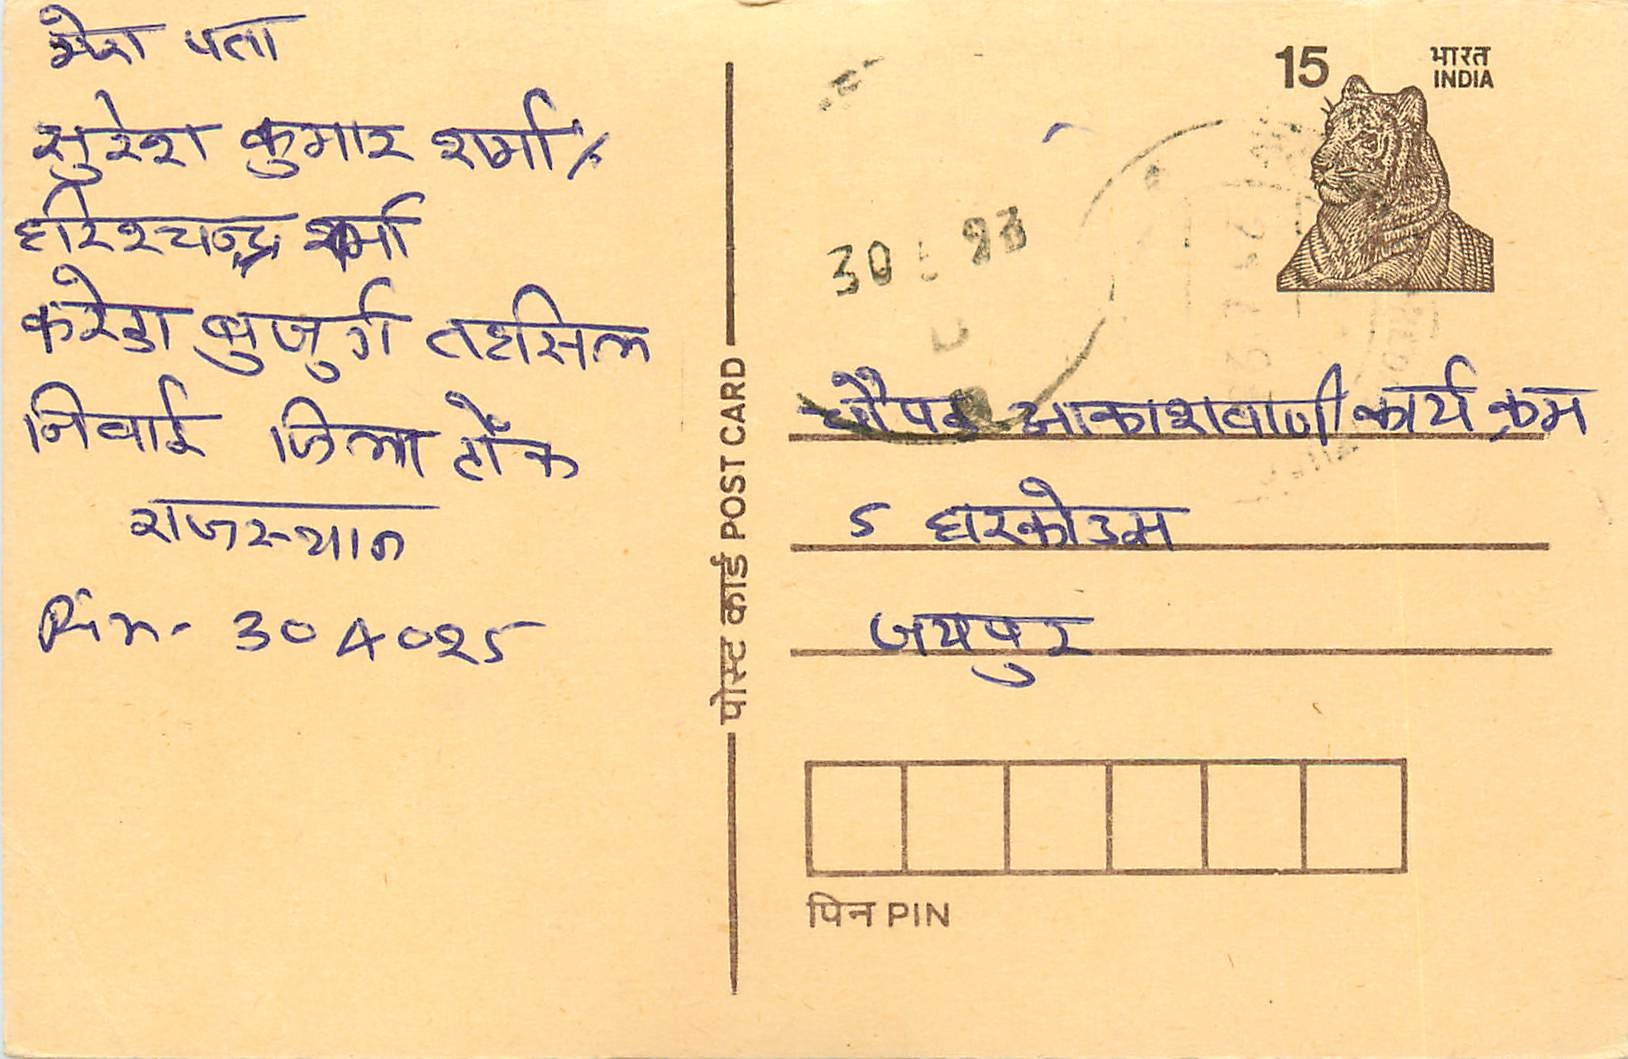 मेरा पता
सुरेश कुमार शर्मा/
हरिश्चन्द्र शर्मा
करेडा बुजुर्ग तहसिल
निवाई जिला टोंक
राजस्थान
Pin- 304025
पोस्ट कार्ड POST CARD
15 भारत
INDIA
30 93
चौपड आकाशवाणी कार्यक्रम
5 पारकोउस
जयपुर
पिन PIN